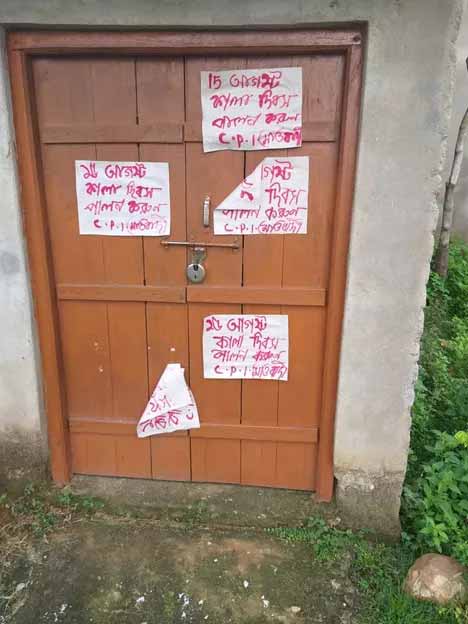 15 আগষ্ট
কালা দিবস
পালন করুন
C.P.I (মাওবাদী)
১৫ আগষ্ট
কালা দিবস
পালন করুন
C.P.I. (মাওবাদী)
গষ্ট
দিবস
পালন করুন
C.P.I. (মাওবাদী)
১৫ আগষ্ট
কালা দিবস
পালন করুন
C.P.I. (মাওবাদী)